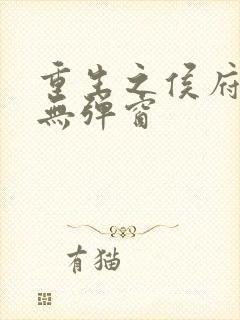 重生之侯府
無彈窗
有猫